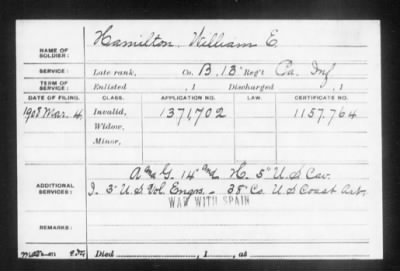 Hamilton William E.
NAME OF SOLDIER:
SERVICE: Late rank, Co. B. 13" Reg't Pa. Inf
TERM OF SERVICE: Enlisted , 1 Discharged , 1
DATE OF FILING. CLASS. APPLICATION NO. LAW. CERTIFICATE NO.
1908 Mar. 4, Invalid, 1371702 1157.764
Widow,
Minor,
ADDITIONAL SERVICES: G. 14" and H. 5" U.S Cav.
I. 3" U.S Vol. Engrs. - 38" Co. U S Coast Art.
WAR WITH SPAIN
REMARKS:
Died , 1 , at